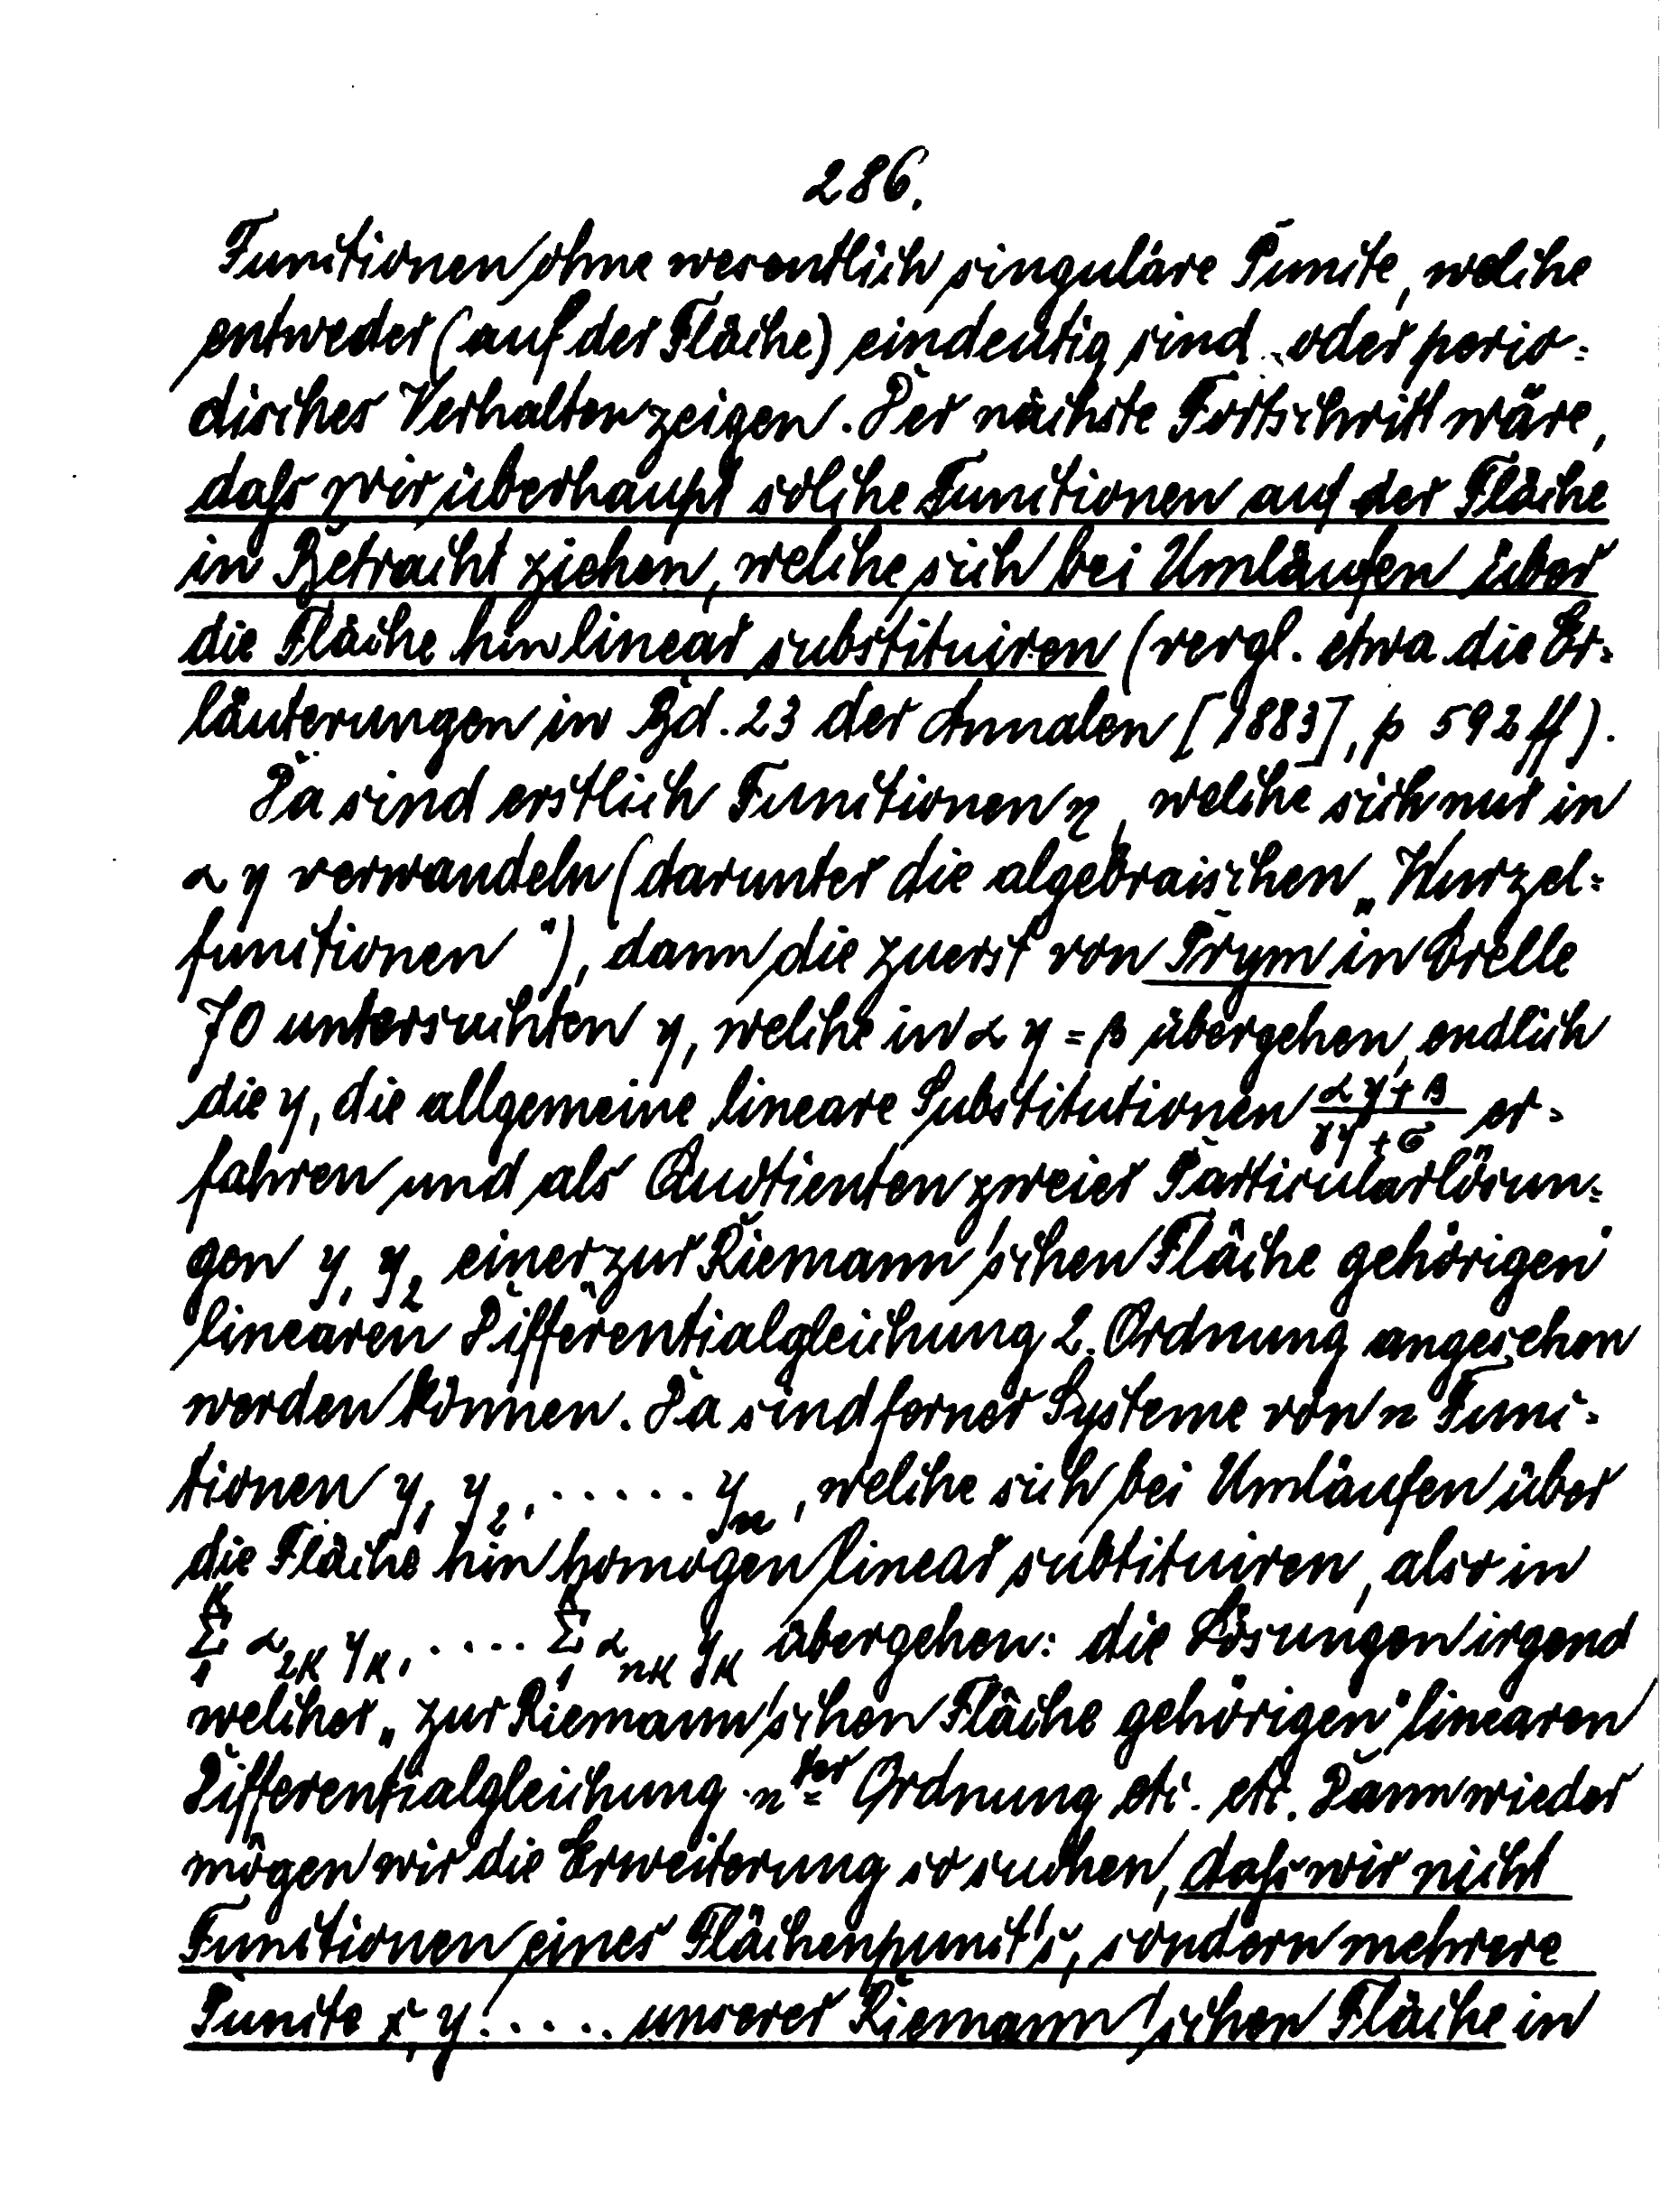 286.
Functionen ohne wesentlich singuläre Puncte, welche
entweder (auf der Fläche) eindeutig sind oder perio-
disches Verhalten zeigen. Der nächste Fortschritt wäre,
daß wir überhaupt solche Functionen auf der Fläche
in Betracht ziehen, welche sich bei Umläufen über
die Fläche hin linear substituiren (vergl. etwa die Er-
läuterungen in Bd. 23 der Annalen [1883], p 592 ff).
Da sind erstlich Functionen η, welche sich nur in
α y verwandeln (darunter die algebraischen „Wurzel-
functionen"), dann die zuerst von Prym in Crelle
70 untersuchten y, welche in α y = β übergehen, endlich
die y, die allgemeine lineare Substitutionen (αy+β)/(γy+δ) er-
fahren und als Quotienten zweier Particularlösun-
gen y₁ y₂ einer „zur Riemann'schen Fläche gehörigen"
linearen Differentialgleichung 2. Ordnung angesehen
werden können. Da sind ferner Systeme von n Func-
tionen y₁ y₂, ..... yₙ, welche sich bei Umläufen über
die Fläche hin homogen linear subtituiren, also in
Σ₁ᴷ α₂ₖ yₖ, ..... Σ₁ᴷ αₙₖ yₖ übergehen: die Lösungen irgend
welcher „zur Riemann'schen Fläche gehörigen" linearen
Differentialgleichung nter Ordnung etc. etc. Dann wieder
mögen wir die Erweiterung so suchen, daß wir nicht
Functionen eines Flächenpunct's, sondern mehrere
Puncte x, y ..... unserer Riemann'schen Fläche in